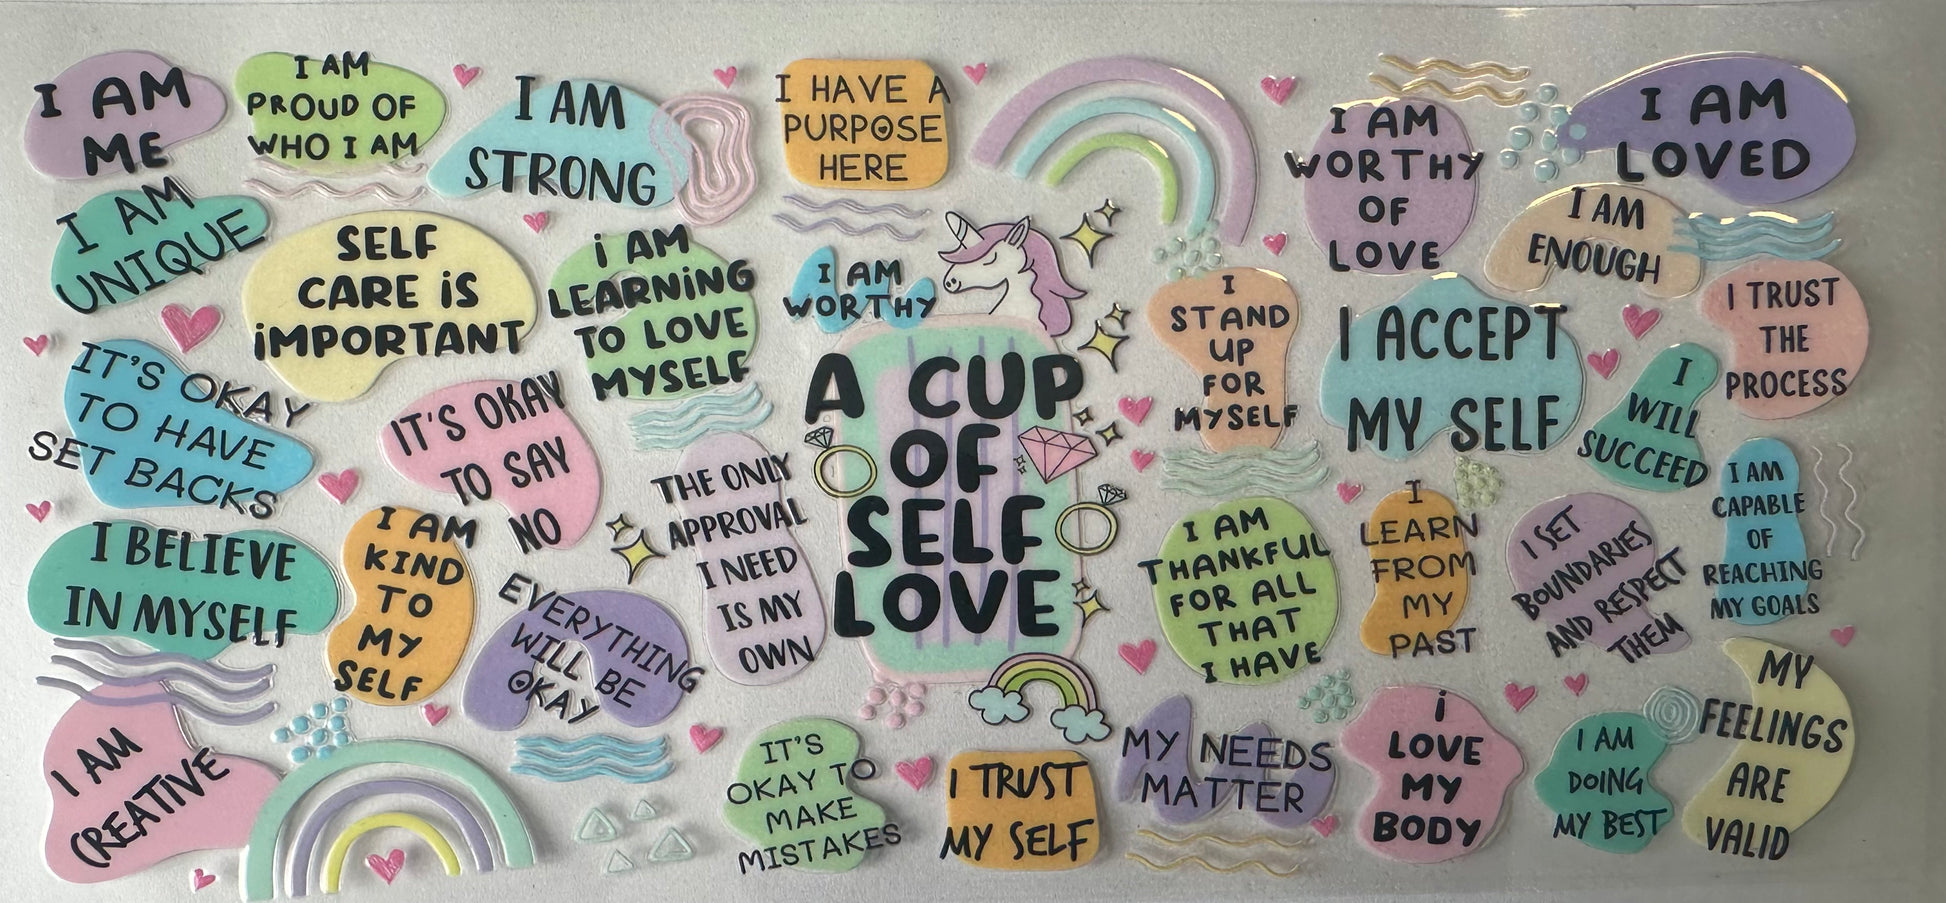 I AM
ME
I AM
PROUD OF
WHO I AM
I AM
STRONG
I HAVE A
PURPOSE
HERE
I AM
WORTHY
OF
LOVE
I AM
LOVED
I AM
UNIQUE
SELF
CARE iS
iMPORTANT
i AM
LEARNiNG
TO LOVE
MYSELF
I AM
WORTHY
I
STAND
UP
FOR
MYSELF
I ACCEPT
MY SELF
I AM
ENOUGH
I TRUST
THE
PROCESS
I
WILL
SUCCEED
IT'S OKAY
TO HAVE
SET BACKS
IT'S OKAY
TO SAY
NO
THE ONLY
APPROVAL
I NEED
IS MY
OWN
A CUP
OF
SELF
LOVE
I AM
THANKFUL
FOR ALL
THAT
I HAVE
I
LEARN
FROM
MY
PAST
I SET
BOUNDARIES
AND RESPECT
THEM
I AM
CAPABLE
OF
REACHING
MY GOALS
I BELIEVE
IN MYSELF
I AM
KIND
TO
MY
SELF
EVERYTHING
WILL BE
OKAY
I AM
CREATIVE
IT'S
OKAY TO
MAKE
MISTAKES
I TRUST
MY SELF
MY NEEDS
MATTER
i
LOVE
MY
BODY
I AM
DOING
MY BEST
MY
FEELINGS
ARE
VALID